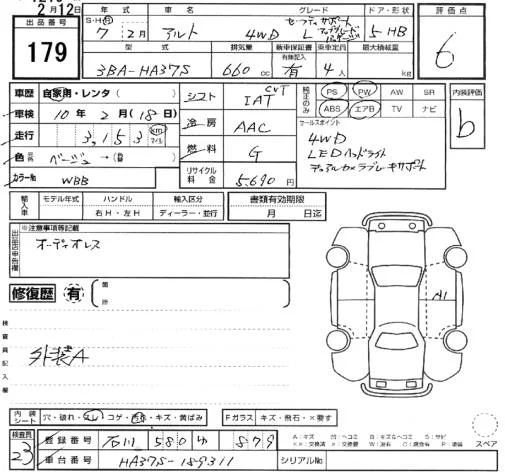 2月12日
出品番号
179
S・H・R
年 車名 グレード ドア・形状
7 2月 アルト 4WD L 5 HB
型式 排気量 新車保証書 乗車定員 最大積載量
有無記入
3BA-HA37S 660 cc 有 4人 kg
評価点
6
車歴 自家用・レンタ
車検 10年 2月(18日)
走行 3,153 km マイル
色 元色 ベージュ →(替 )
カラーNo WBB
シフト CVT IAT
冷房 AAC
燃料 G
リサイクル料金 5,690円
純正のみ
PS PW AW SR
ABS エアB TV ナビ
セールスポイント
4WD
LEDヘッドライト
デュアルカメラブレーキサポート
内装評価
b
輸入車 モデル年式 ハンドル 輸入区分
右H・左H ディーラー・並行
書類有効期限
月 日迄
出品店申告欄
※注意事項等記載
オーディオレス
修復歴 有
箇所
検査員記入欄
外装A
A1
内装シート 穴・破れ・スレ・コゲ・汚れ・キズ・黄ばみ
Fガラス キズ・飛石・×要す
検査員
23
登録番号 石川 580 879
車台番号 HA37S-189311
シリアルNo
A:キズ U:ヘコミ B:キズ&ヘコミ S:サビ
スペア